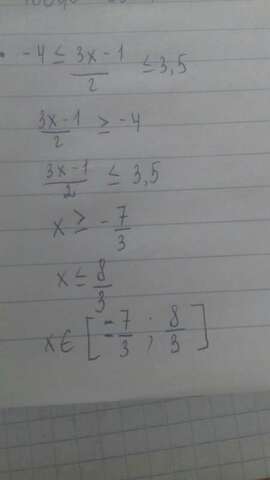 -4 ≤ (3x-1)/2 ≤ 3,5
(3x-1)/2 ≥ -4
(3x-1)/2 ≤ 3,5
x ≥ -7/3
x ≤ 8/3
x ∈ [-7/3 ; 8/3]